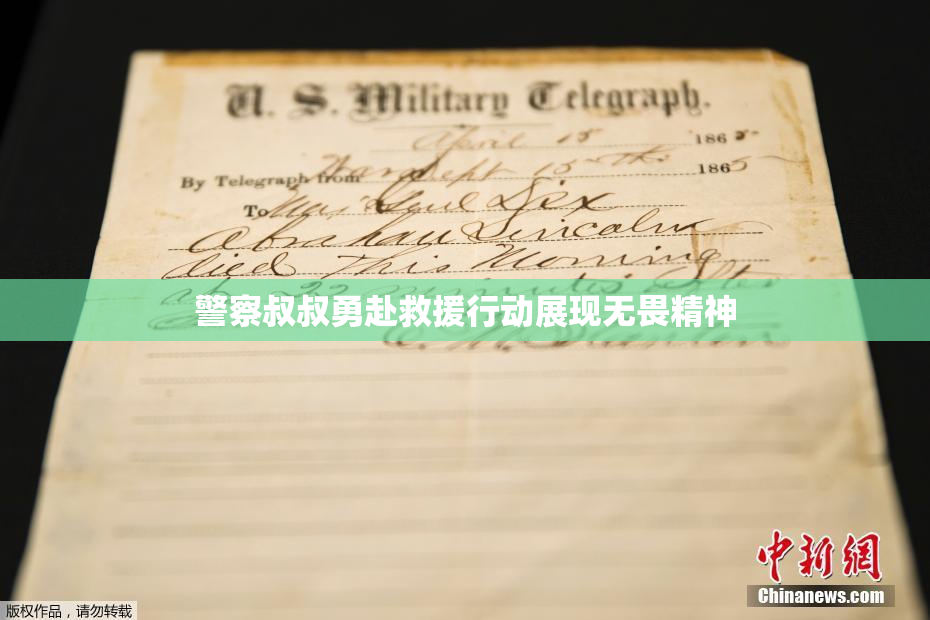 U. S. Military Telegraph.
April 15 1865
By Telegraph from War Dept 15th 1865
To Maj Genl Dix
Abraham Lincoln
died This Morning
at 22 minutes after
警察叔叔勇赴救援行动展现无畏精神
E. M. Stanton
中新网
Chinanews.com
版权作品,请勿转载